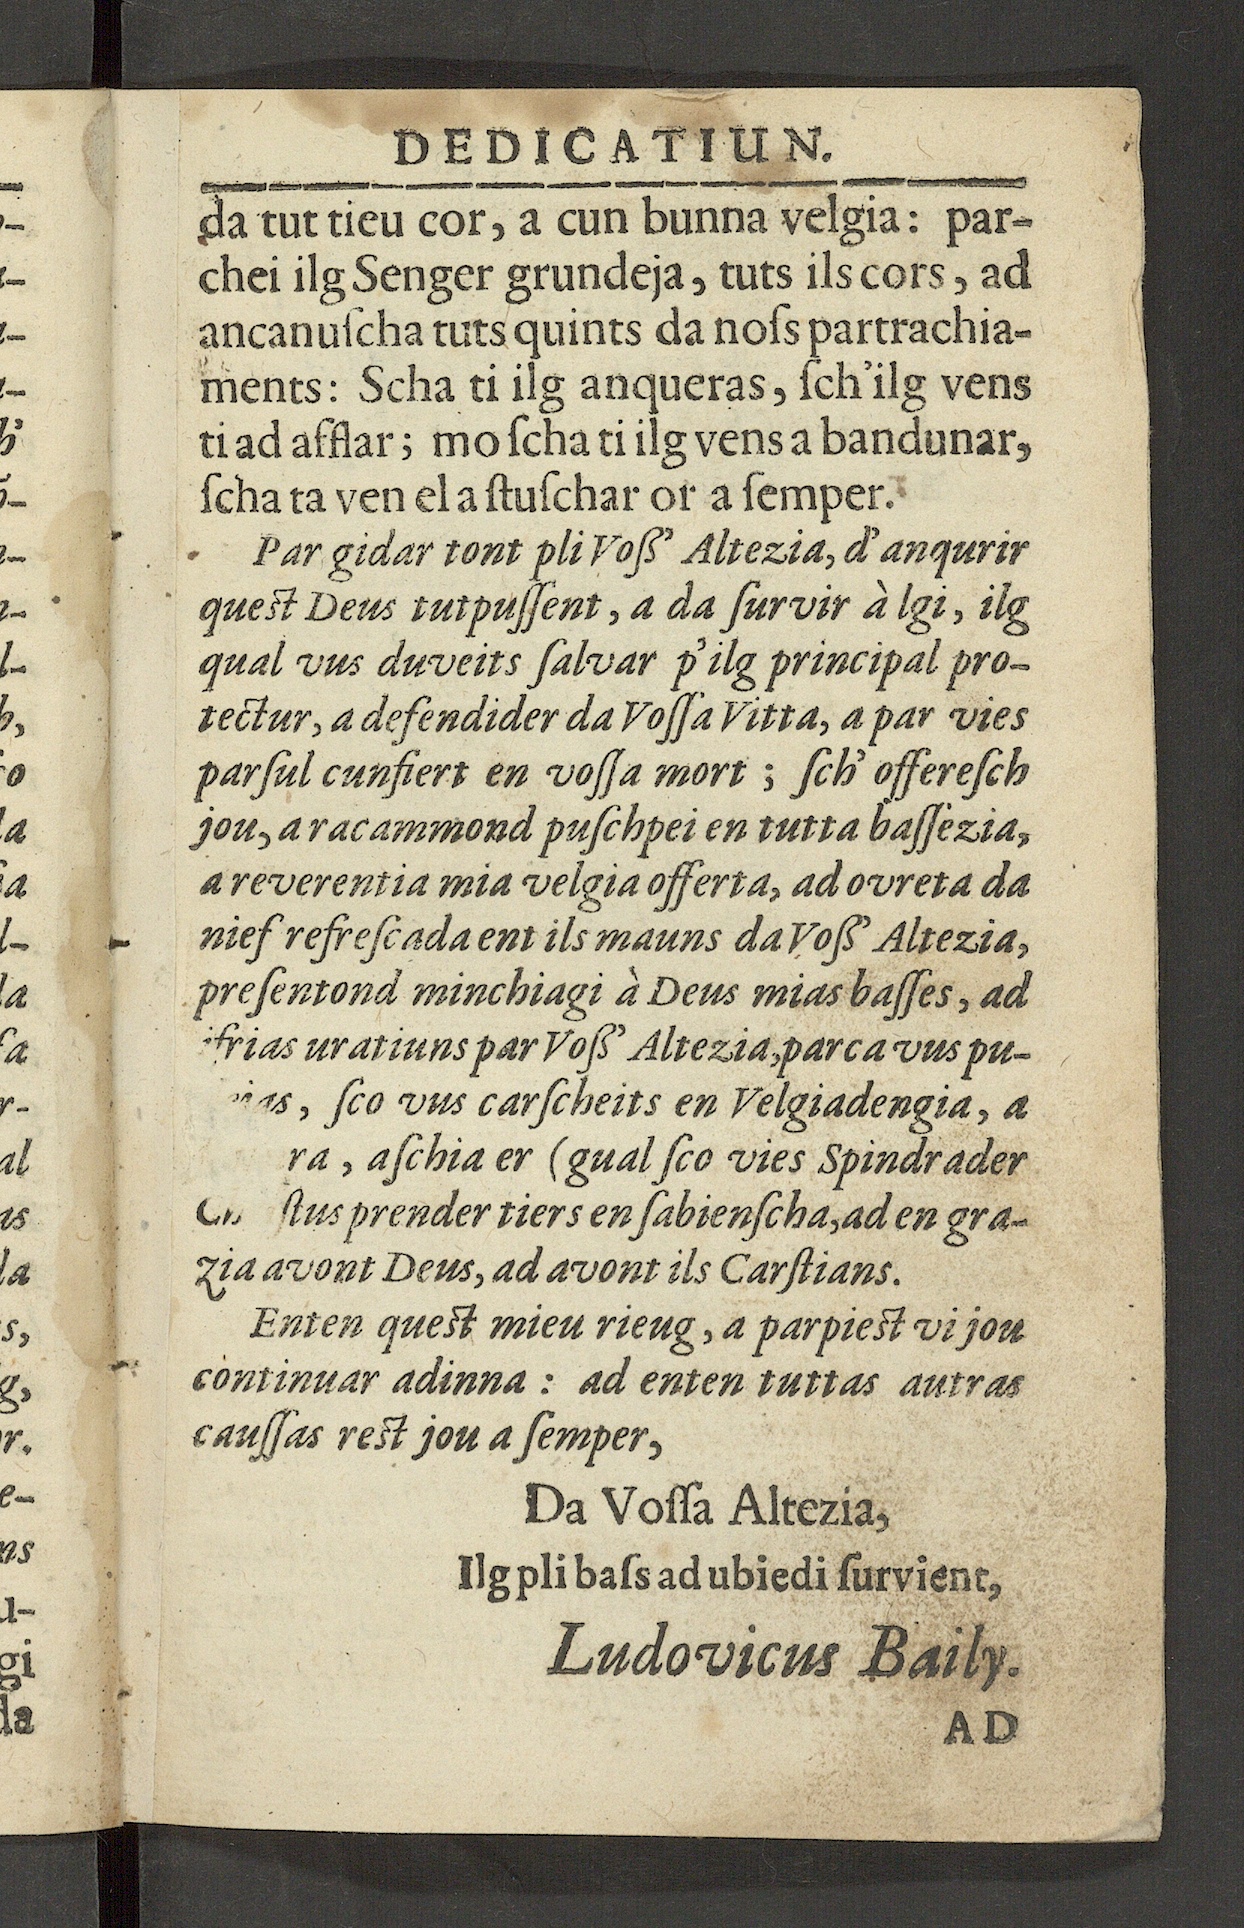 DEDICATIUN.
da tut tieu cor, a cun bunna velgia: par-
chei ilg Senger grundeja, tuts ils cors, ad
ancanuſcha tuts quints da noſs partrachia-
ments: Scha ti ilg anqueras, ſch'ilg vens
ti ad afflar; mo ſcha ti ilg vens a bandunar,
ſcha ta ven el a ſtuſchar or a ſemper.
Par gidar tont pli Voß' Altezia, d'anqurir
queſt Deus tutpuſſent, a da ſurvir à lgi, ilg
qual vus duveits ſalvar p'ilg principal pro-
tectur, a defendider da Voſſa Vitta, a par vies
parſul cunfiert en voſſa mort; ſch' offereſch
jou, a racammond puſchpei en tutta baſſezia,
a reverentia mia velgia offerta, ad ovreta da
nief refreſcada ent ils mauns da Voß' Altezia,
preſentond minchiagi à Deus mias baſſes, ad
uratiuns par Voß' Altezia, parca vus pu-
ſco vus carſcheits en Velgiadengia, a
ra, aſchia er (gual ſco vies Spindrader
ſtus prender tiers en ſabienſcha, ad en gra-
zia avont Deus, ad avont ils Carſtians.
Enten queſt mieu rieug, a parpieſt vi jou
continuar adinna: ad enten tuttas autras
cauſſas reſt jou a ſemper,
Da Voſſa Altezia,
Ilg pli baſs ad ubiedi ſurvient,
Ludovicus Baily.
AD